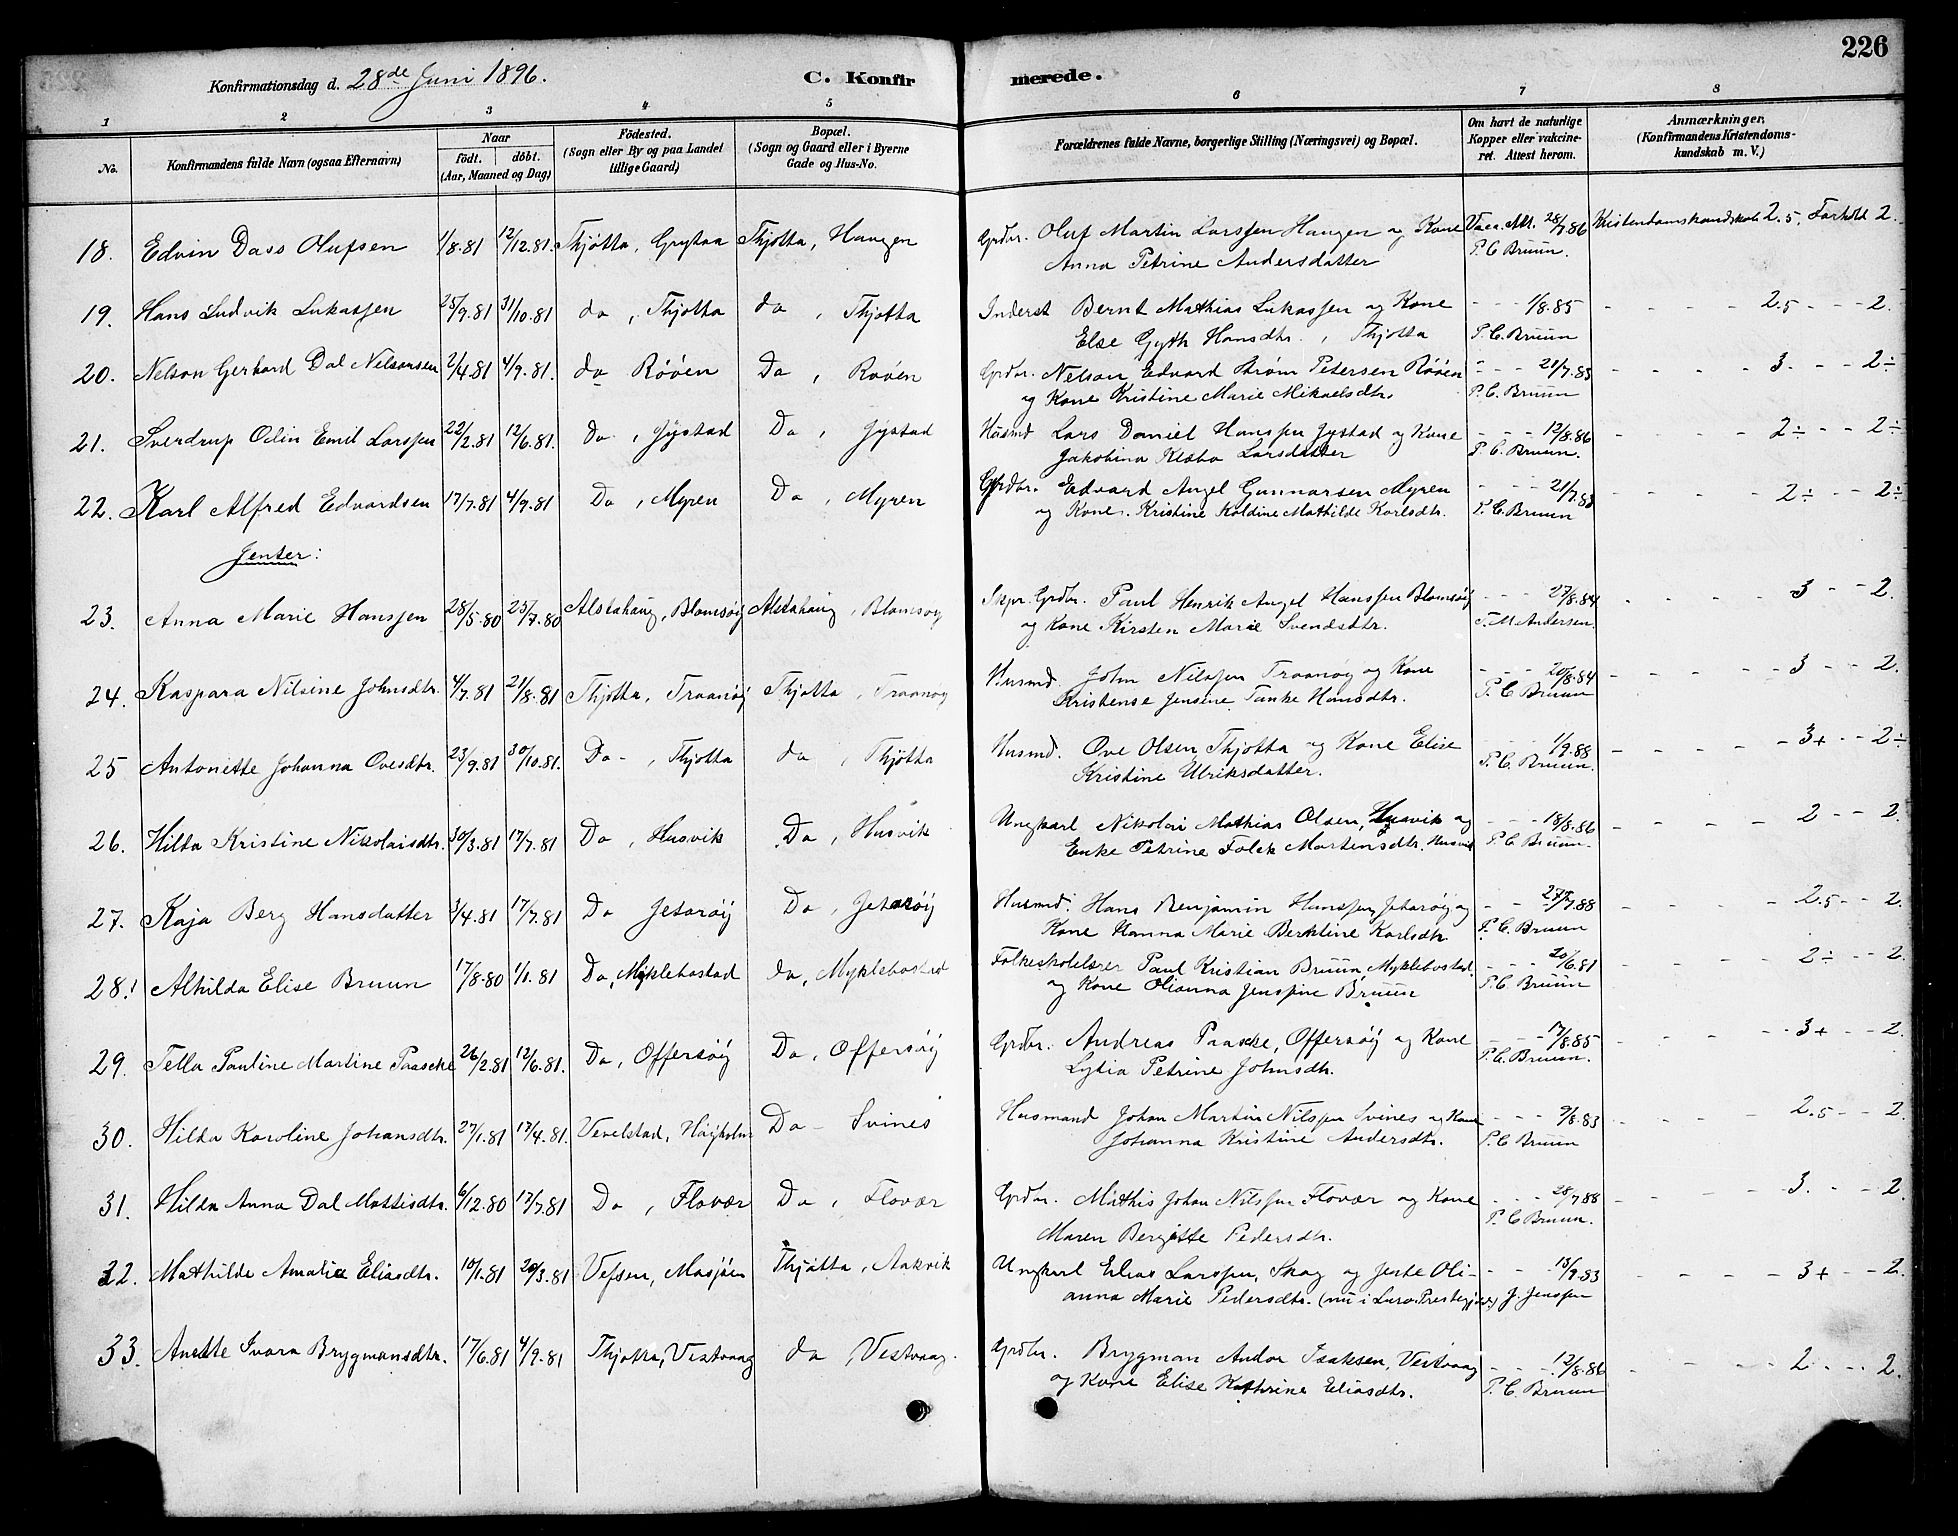 226
Konfirmationsdag d. 28de Juni 1896. C. Konfirmerede.
1 2 3 4 5 6 7 8
No. Konfirmandens fulde Navn (ogsaa Efternavn) Naar födt. döbt. (Aar, Maaned og Dag) Födested. (Sogn eller By og paa Landet tillige Gaard) Bopæl. (Sogn og Gaard eller i Byerne Gade og Hus-No. Forældrenes fulde Navne, borgerlige Stilling (Næringsvei) og Bopæl. Om havt de naturlige Kopper eller vakcineret. Attest herom. Anmærkninger. (Konfirmandens Kristendomskundskab m. V.)
18. Edvin Dass Olufsen 1/8.81 12/12.81. Thjøtta, Grytaa Thjøtta, Haugen Grdbr. Oluf Martin Larssen Haugen og Kone Vacc. Att. 28/7.86 Kristendomskundskab 2.5, Forhold 2.
Anna Petrine Andersdatter P. C. Bruun.
19. Hans Ludvik Lukassen 25/9.81 31/10.81 do, Thjøtta do, Thjøtta Inderst Bernt Mathias Lukassen og Kone - - - 1/8.85 - - - - 2.5 - - - 2.
Else Gyth Hansdtr., Thjøtta P. C. Bruun
20. Nelson Gerhard Dal Nelsonsen 2/4.81 4/9.81. do Røöen Do, Røöen Grdbr. Nelson Edvard Strøm Petersen Røöen - - - 21/7.83 - - - - 3. - - - 2÷
og Kone Kristine Marie Mikaelsdtr. P. C. Bruun
21. Sverdrup Odin Emil Larssen 22/2.81 12/6.81. Do, Jystad Do, Jystad Husmd Lars Daniel Hanssen Jystad og Kone - - - 12/8.86 - - - - 2÷ - - - 2÷
Jakobina Klæbo Larsdatter P. C. Bruun.
22. Karl Alfred Edvardsen 17/7.81 4/9.81 Do, Myren Do, Myren Grdbr. Edvard Angel Gunnarsen Myren - - - 21/7.83 - - - - 2÷ - - - 2÷
og Kone. Kristine Koldine Mathilde Karlsdtr. P. C. Bruun
Jenter:
23. Anna Marie Hanssen 28/5.80 25/7.80 Alstahaug, Blomsøy Alstahaug, Blomsøy Skpr. Grdbr. Paul Henrik Angel Hanssen Blomsøy - - - 27/8.84 - - - - 3 - - 2.
og Kone Kirsten Marie Svendsdtr. T. M. Andersen.
24. Kaspara Nilsine Johnsdtr. 4/7.81 21/8.81 Thjøtta, Traanøy Thjøtta, Traanøy Husmd. John Nilssen Traanøy og Kone - - - 20/8.84 - - - - 3 - - - 2.
Kristense Jensine Tanke Hansdtr. P. C Bruun
25 Antonette Johanna Ovesdtr. 23/9.81 30/10.81. Do -, Thjøtta do, Thjøtta Husmd. Ove Olsen Thjøtta og Kone Elise - - - 1/9.88 - - - - 3+ - - 2÷
Kristine Ulriksdatter. P. C. Bruun.
26. Hilda Kristine Nikolaisdtr. 30/3.81 17/7.81 Do, Husvik Do, Husvik Ungkarl Nikolai Mathias Olsen, Husvik og - - - 18/8.86 - - - - 2 - - - 2.
Enke Petrine Falck Martensdtr. Husvik P. C Bruun.
27. Kaja Berg Hansdatter 3/4.81 17/7.81 Do Jetarøy Do, Jetarøy Husmd. Hans Benjamin Hanssen, Jetarøy og - - 27/7.88 - - - - 2.5 - - 2.
Kone Hanna Marie Berntine Karlsdtr. P. C. Bruun
28. Alhilda Elise Bruun 17/8.80 1/1.81 Do, Myklebostad do, Myklebostad Folkeskolelærer Paul Kristian Bruun, Myklebostad. - - - 20/6.81 2÷ - - 2.
og Kone Olianna Jenssine Bruun P. C. Bruun
29. Tella Pauline Martine Paascke 26/2.81 12/6.81. Do, Offersøy Do, Offersøy Grdbr. Andreas Paascke, Offersøy og Kone - - - 17/8.85 - - - - 3+ - - 2.
Lydia Petrine Johnsdtr. P. C. Bruun.
30. Hilda Karoline Johansdtr. 27/1.81 17/4.81. Vevelstad, Høyholm Do - Svines Husmand Johan Martin Nilssen Svines og Kone - - - 9/8.83 2.5 - - 2.
Johanna Kristine Andersdtr. P. C Bruun
31. Hilda Anna Dal Mattisdtr. 6/12.80 17/7.81 Do, Flovær Do, Flovær Grdbr. Mathis Johan Nilssen Flovær og Kone - - - 28/7.88 - - - - 3. - - 2.
Maren Bergitte Pedersdtr. P. C Bruun.
32. Mathilde Amalie Eliasdtr. 10/1.81 20/3.81 Vefsen, Mosjøen Thjøtta, Aakvik Ungkarl Elias Larssen, Skog og Jente Oli- - - - 13/9.83 - - - - 3+ - - 2.
anna Marie Pedersdtr. (nu i Lurø Prestegj.) J. Jenssen
33. Anette Ivara Brygmansdtr. 17/6.81 4/9.81 Thjøtta, Vestvaag do, Vestvaag. Grdbr. Brygman Andor Isaksen, Vestvaag - - - 12/8.86 - - - - 2. - - 2.
og Kone Elise Kathrine Eliasdtr. P. C. Bruun